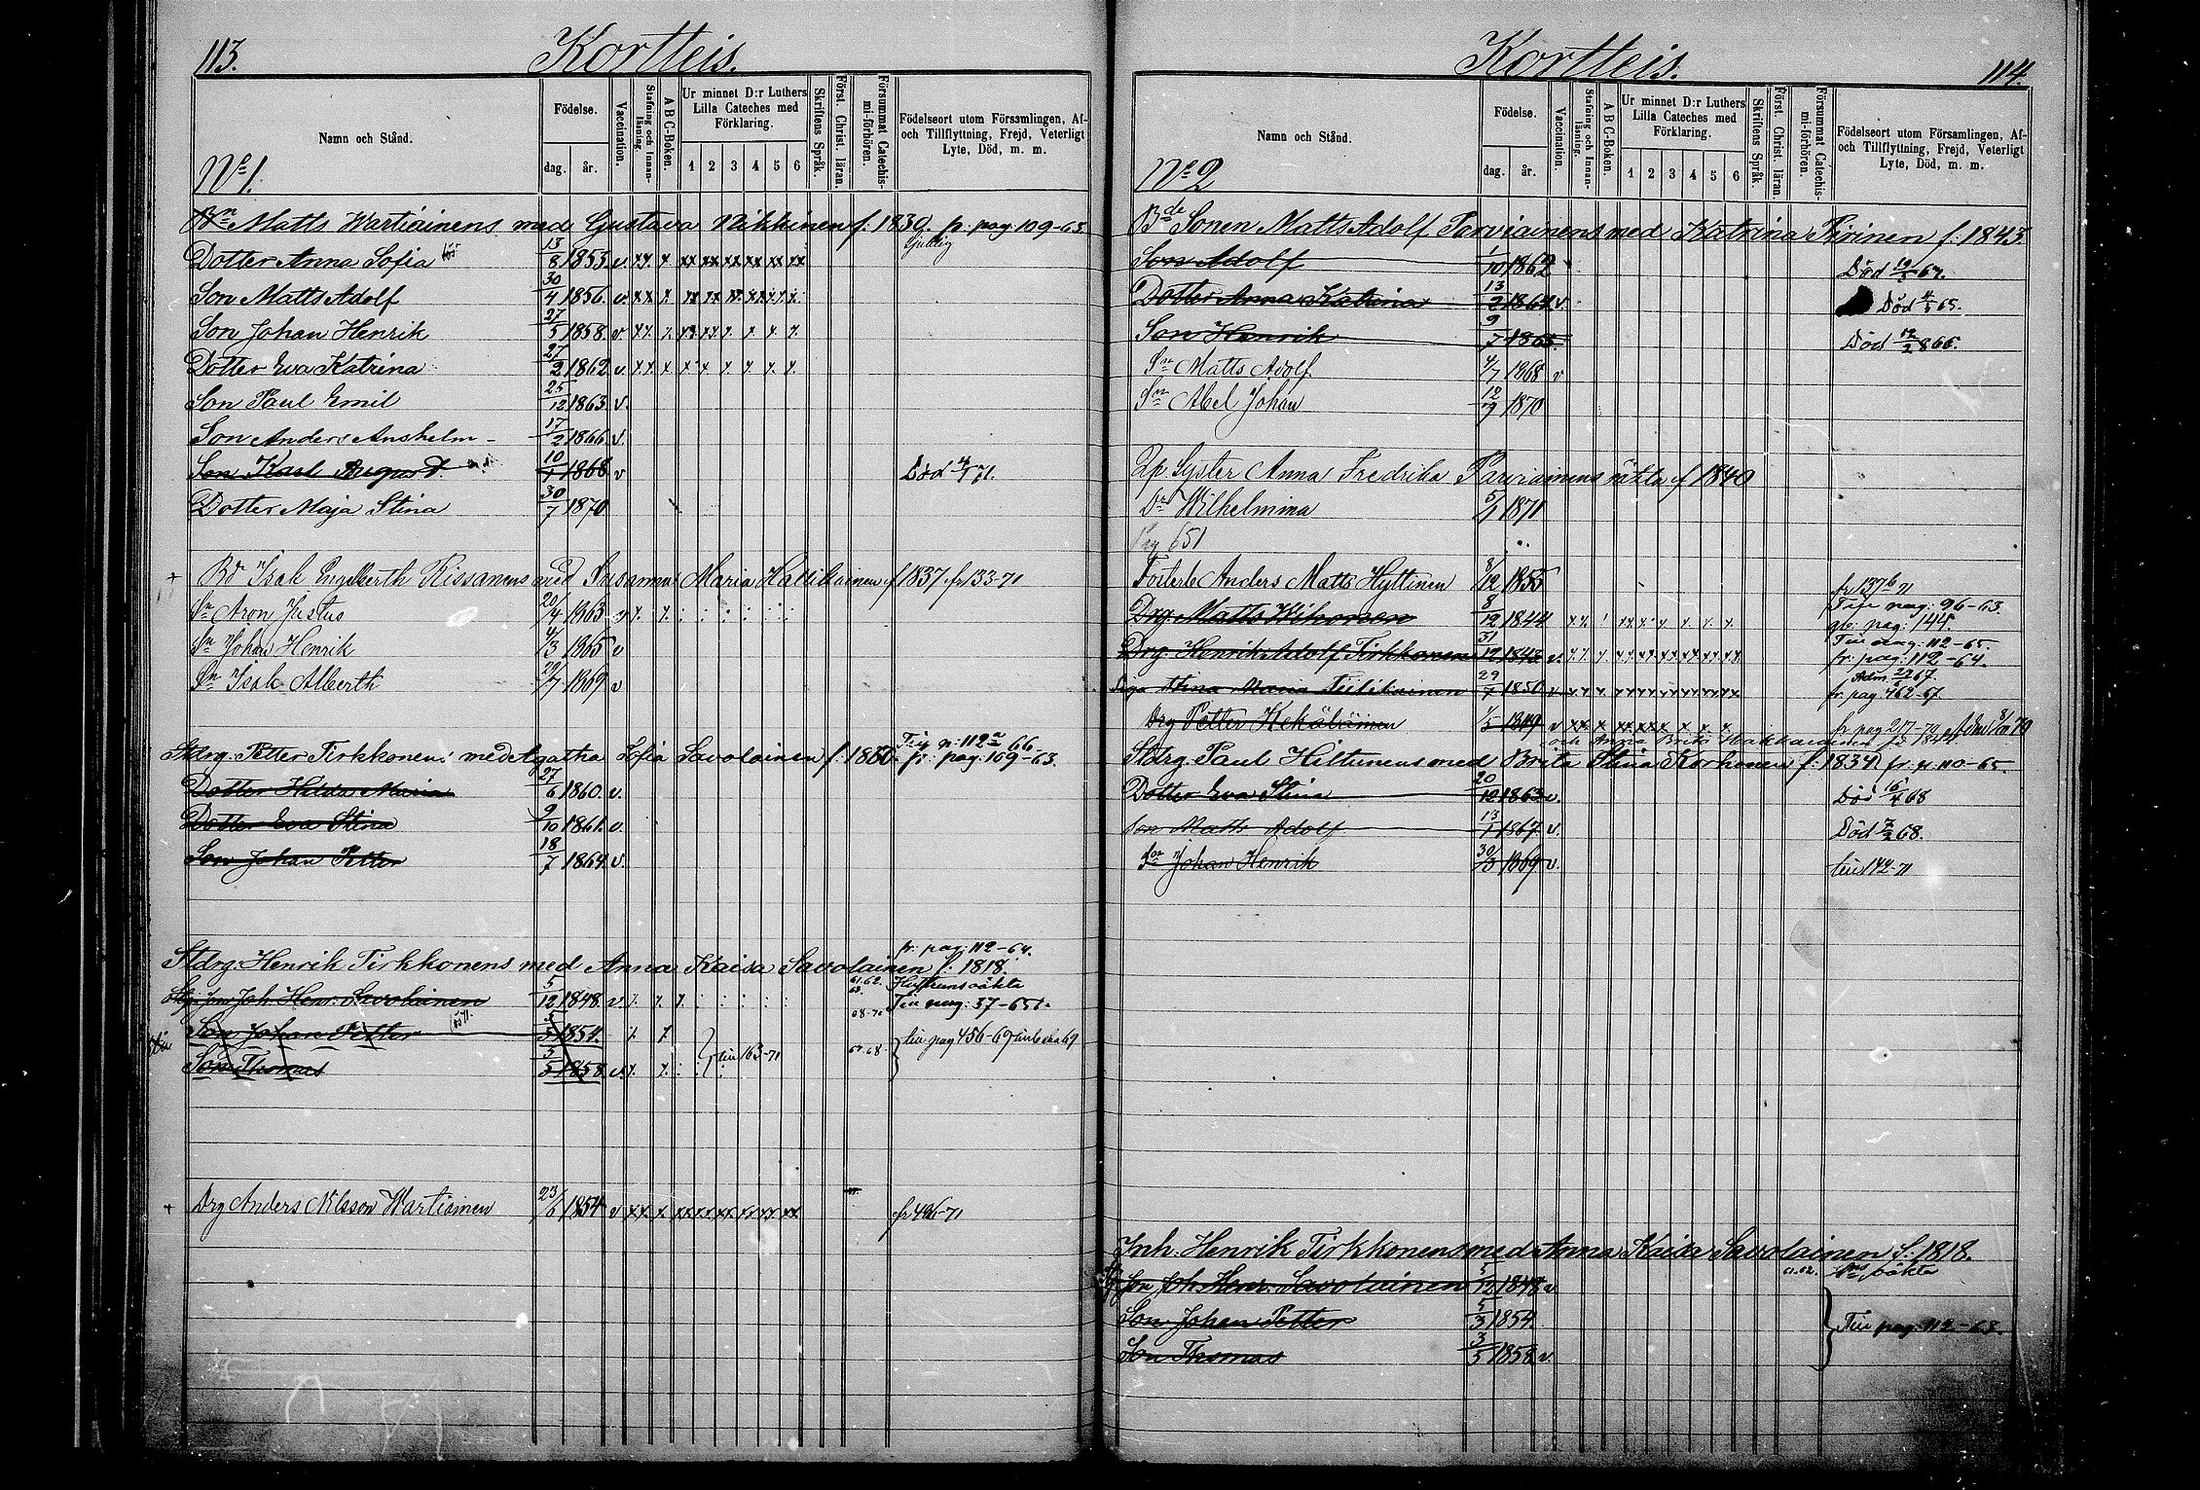 113. Kortteis.
Namn och Stånd.
Födelse.
dag. år.
Vaccination.
Stafning och Innanläsning.
A B C-Boken.
Ur minnet D:r Luthers Lilla Cateches med Förklaring.
1 2 3 4 5 6
Skriftens Språk.
Först. Christ. läran.
Försummat Catechismi-förhören.
Födelseort utom Församlingen, Af- och Tillflyttning, Frejd, Veterligt Lyte, Död, m. m.
No 1.
Matts Wartiainens med Gustava Nikkinen f. 1830. fr. pag 109-63
Dotter Anna Sofia 13/8 1853 v. xx x xx xx xx xx xx xx
Son Matts Adolf 30/4 1856. v. xx x xx xx xx xx xx x
Son Johan Henrik 27/5 1858. v xx x xx xx x x x x
Dotter Eva Katrina 27/2 1862 v. xx x x x x x x x
Son Paul Emil 25/12 1863 v.
Son Anders Anshelm 17/2 1866. v.
Son Karl August 10/1 1868 v Död 71.
Dotter Maja Stina 30/7 1870
+ Bd Isak Engelberth Rissanens med Susanna Maria Hallikainen f 1837 fr 133-71
Sn Aron Justus 20/4 1863
Sn Johan Henrik 4/3 1865 v
Sn Isak Alberth 29/7 1869 v
Stdrg. Petter Tirkkonens med Agatha Sofia Savolainen f: fr: pag: 109-63.
Dotter Hilda Maria 27/6 1860. v.
Dotter Eva Stina 9/10 1861. v.
Son Johan Petter 18/7 1864 v.
fr: pag: 112-64.
Stdrg: Henrik Tirkkonens med Anna Kaisa Savolainen f. 1818.
Joh. Henr. Savolainen 5/12 1848. v. Tiu pag: 37-65
Son Johan Petter 5/3 1854. tiu pag 456-69
Son Thomas 3/5 1858. v. tiu 163-71
+ Drg Anders Nilsson Wartiainen 23/6 1854 v xx x xx xx xx xx xx xx fr 496-71
Kortteis. 114.
Namn och Stånd.
Födelse.
dag. år.
Vaccination.
Stafning och Innanläsning.
A B C-Boken.
Ur minnet D:r Luthers Lilla Cateches med Förklaring.
1 2 3 4 5 6
Skriftens Språk.
Först. Christ. läran.
Försummat Catechismi-förhören.
Födelseort utom Församlingen, Af- och Tillflyttning, Frejd, Veterligt Lyte, Död, m. m.
No 2
Bde Sonen Matts Adolf Parviainens med Katrina Pirinen f: 1843.
Son Adolf 1/10 1862 Död 67.
Dotter Anna Katrina 13/2 1864 v. Död 65.
Son Henrik 9/7 1865 Död 12/2 866.
Sn Matts Adolf 4/7 1868 v
Sn Abel Johan 12/9 1870
Syster Anna Fredrika Parviainens oäkta f 1840
Dr Wilhelmina 5/1 1871
Pag 651
Anders Matts Hyttinen 8/12 1855 fr 137-71
Tiu pag: 96-63.
Drg. Matts 8/12 1844 pag: 144.
Tiu pag: 112-65.
Drg. Henrik Adolf Tirkkonen 31/12 1843 v. fr: pag: 112-64.
Piga Stina Maria 29/7 1850 v fr. pag 462-67
Drg Petter Kekäläinen 1/5 1849 v fr pag 217-70
Stdrg. Paul Hiltunens med Brita Stina Korhonen f: 1834 fr. p: 110-65.
Dotter Eva Stina 20/12 1863 v. Död 16/4 68
Son Matts Adolf 13/1 1867 v. Död 68.
Sn Johan Henrik 30/3 1869 v. tiu 142-71
Inh. Henrik Tirkkonens med Anna Kaisa Savolainen f. 1818.
Son Joh. Henr. Savolainen 5/12 1848 v. oäkta
Son Johan Petter 5/3 1854 Tiu pag: 112-63.
Son Thomas 3/5 1858 v.